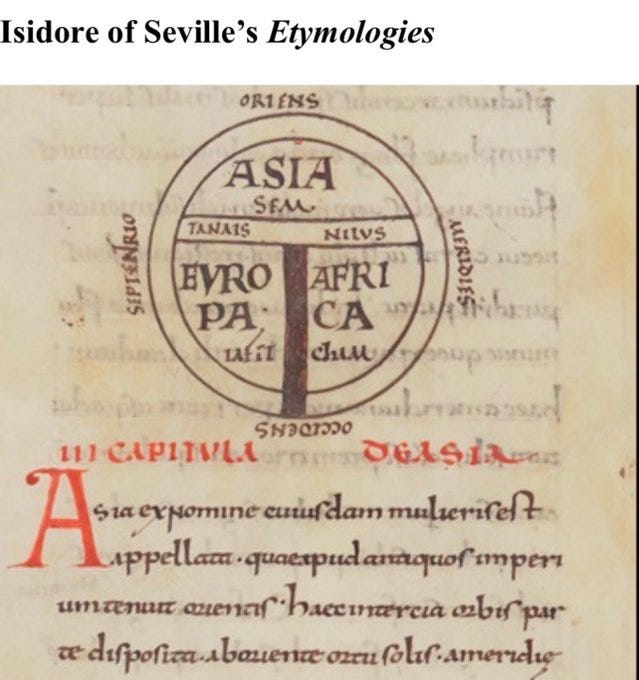 Isidore of Seville’s Etymologies
ORIENS
ASIA
SEM
TANAIS NILVS
SEPTENTRIO
MERIDIES
EVRO AFRI
PA CA
iafet cham
OCCIDENS
III CAPITVLA DE ASIA
Asia ex nomine cuiusdam mulieris est
appellata · quae apud antiquos imperi
um tenuit orientis · haec in tercia orbis par
te disposita · ab oriente ortu solis · a meridie